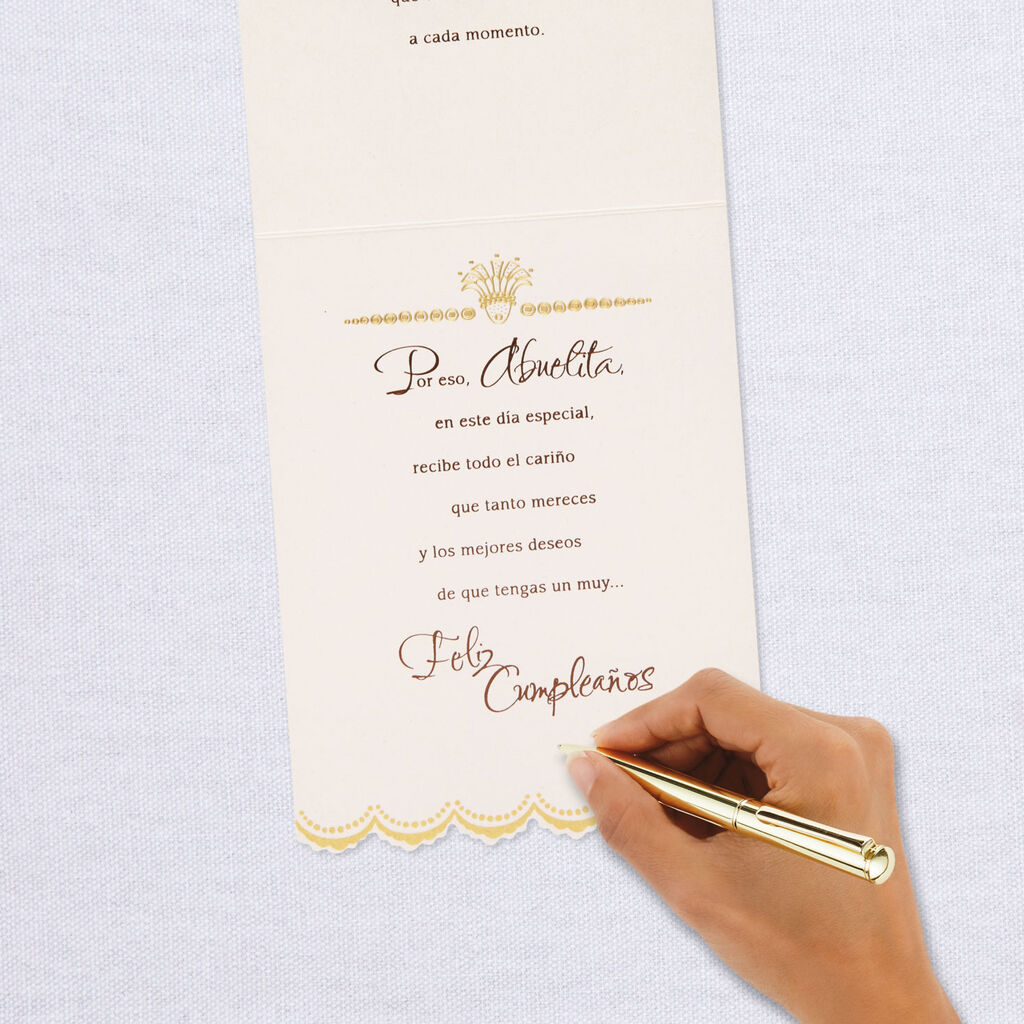 a cada momento.
Por eso, Abuelita,
en este día especial,
recibe todo el cariño
que tanto mereces
y los mejores deseos
de que tengas un muy...
Feliz
Cumpleaños